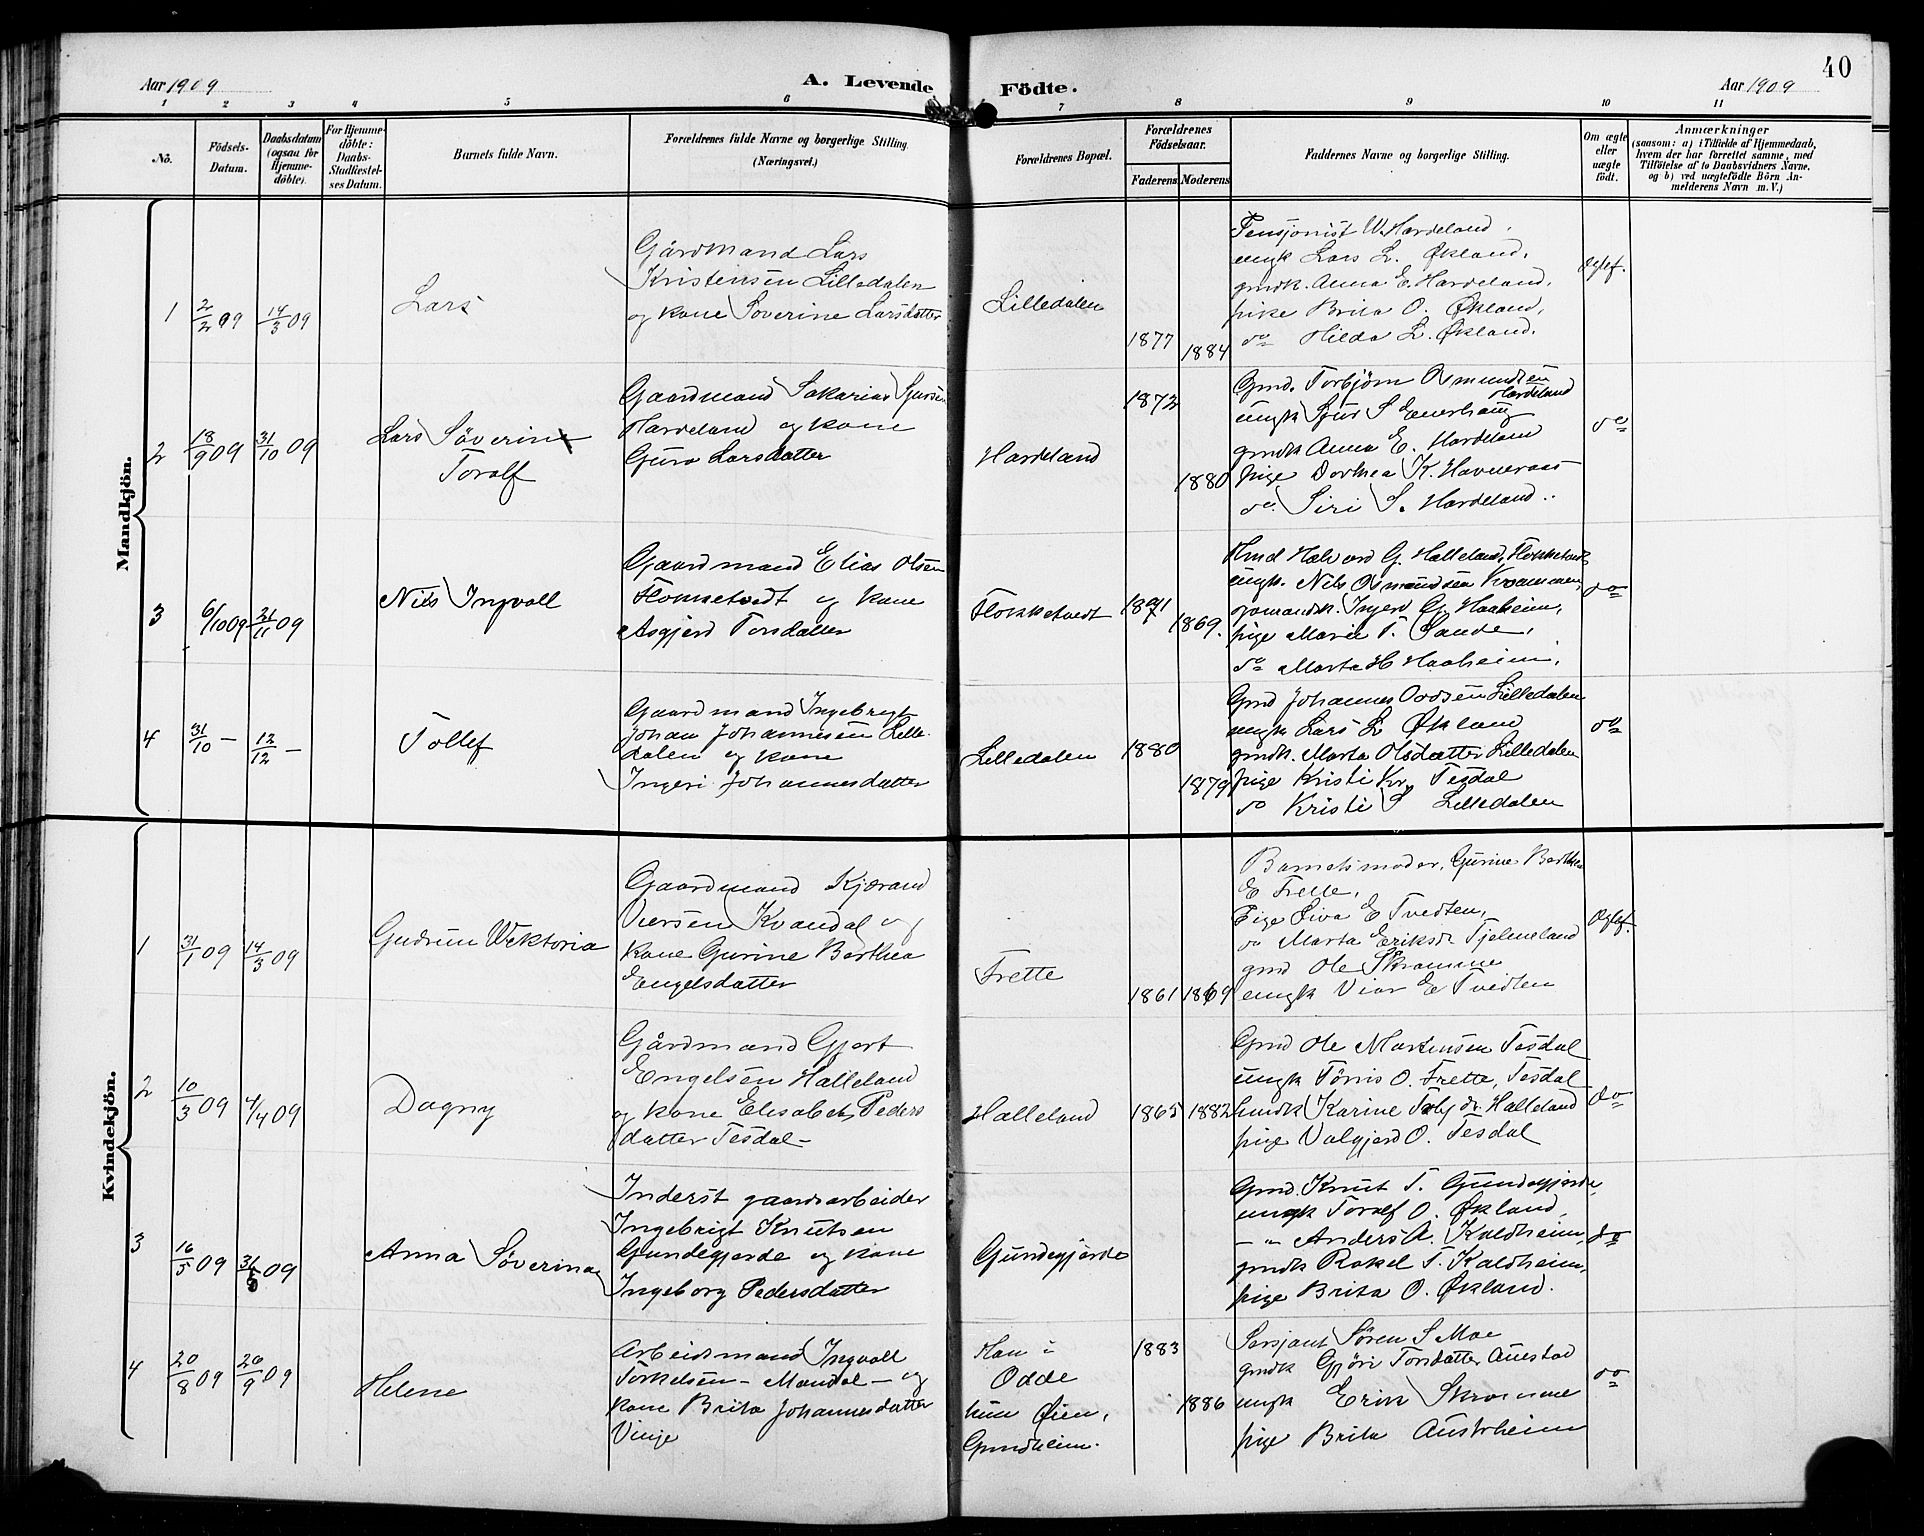 Aar 1909
A. Levende
Födte.
Aar 1909
40
1 2 3 4 5 6 7 8 9 10 11
No.
Födsels-
Datum.
Daabsdatum
(ogsaa for
Hjemme-
döbte).
For Hjemme-
döbte:
Daabs-
Stadfæstel-
ses Datum.
Barnets fulde Navn.
Forældrenes fulde Navne og borgerlige Stilling
(Næringsvei.)
Forældrenes Bopæl.
Forældrenes
Födselsaar.
Faderens
Moderens
Faddernes Navne og borgerlige Stilling.
Om ægte
eller
uægte
födt.
Anmærkninger
(saasom: a) i Tilfælde af Hjemmedaab,
hvem der har forrettet samme, med
Tilföielse af to Daabsvidners Navne.
og b) ved uægtefödte Börn An-
melderens Navn m. V.)
Mandkjön.
1
2/2 09
14/3 09
Lars
Gårdmand Lars
Kristensen Lilledalen
og kone Soverine Larsdatter
Lilledalen
1877
1884
Pensjonist W. Hardeland,
ungk Lars L. Økland,
gmdk. Anna E. Hardeland,
pike Brita O. Økland,
do Hilda L. Økland.
2
18/9 09
31/10 09
Lars Søverin
Toralf
Gaardmand Sakarias Sjursen
Hardeland og kone
Guro Larsdatter
Hardeland
1872
1880
Gmd. Torbjørn Osmundsen
Hardeland
ungk Sjur S Enerhaug
gmdk Anna E. Hardeland
pige Dorthea K. Havneraas
do. Siri S. Hardeland..
do
3
6/10 09
21/11 09
Nils Ingvall
Gaardmand Elias Olsen
Flokketvedt og kone
Asgjerd Torsdatter
Flokketvedt
1871
1869.
Halvord G. Halleland, Flokketvedt
ungk. Nils Osmundsen
Ingerd G. Haaheim,
pige Marie T. Sande,
do Marta H Haaheim,
do
4
31/10 –
12/12 –
Tollef
Gaardmand Ingebrigt
Johan Johannesen Lille-
dalen og kone
Ingeri Johannesdatter
Lilledalen
1880
1879
Gmd Johannes Oddsen Lilledalen
ungk Lars L Økland
gmdk. Marta Olsdatter Lilledalen
pige Kristi Kr. Tesdal
do Kristi S Lilledalen
do
Kvindekjön.
1
31/1 09
14/3 09
Gudrun Wiktoria
Gaardmand Kjærand
Viersen Kvandal og
kone Gurine Berthea
Engelsdatter
Frette
1861
1869
Barnetsmoder, Gurine Berthea
E Frette,
Pige Siva E Tvedten,
do Marta Eriksdr Tjelmeland
gmd Ole Skromme
ungk Viar E Tvedten
2
10/3 09
4/4 09
Dagny
Gårdmand Gjert
Engelsen Halleland
og kone Elisabet Peders
datter Tesdal –
Halleland
1865
1882
Gmd Ole Mortensen Tesdal
ungk Tønis O. Frette, Tesdal
Karine Torbj.dr. Halleland
pige Valgjerd O. Tesdal
do
3
16/5 09
09
Anna Søverina
Inderst gaardsarbeider
Ingebrigt Knutsen
Gundegjerde og kone
Ingeborg Pedersdatter
Gundegjerde
Gmd. Knut T. Gundegjerde,
ungk Toralf O. Økland,
– " – Anders A. Kaldheim,
gmdk Rakel T. Kaldheim,
pige Brita O. Økland.
do
4
20/8 09
26/9 09
Helene
Arbeidsmand Ingvall
Torkelsen – Mandal – og
kone Brita Johannesdatter
Vinje
Han i
Odde
hun Øien,
Grindheim.
1883
1886
Sersjant Søren S Moe
gmdk Gjøri Torsdatter Austad
ungk Erik Skromme
pige Brita Austrheim
do